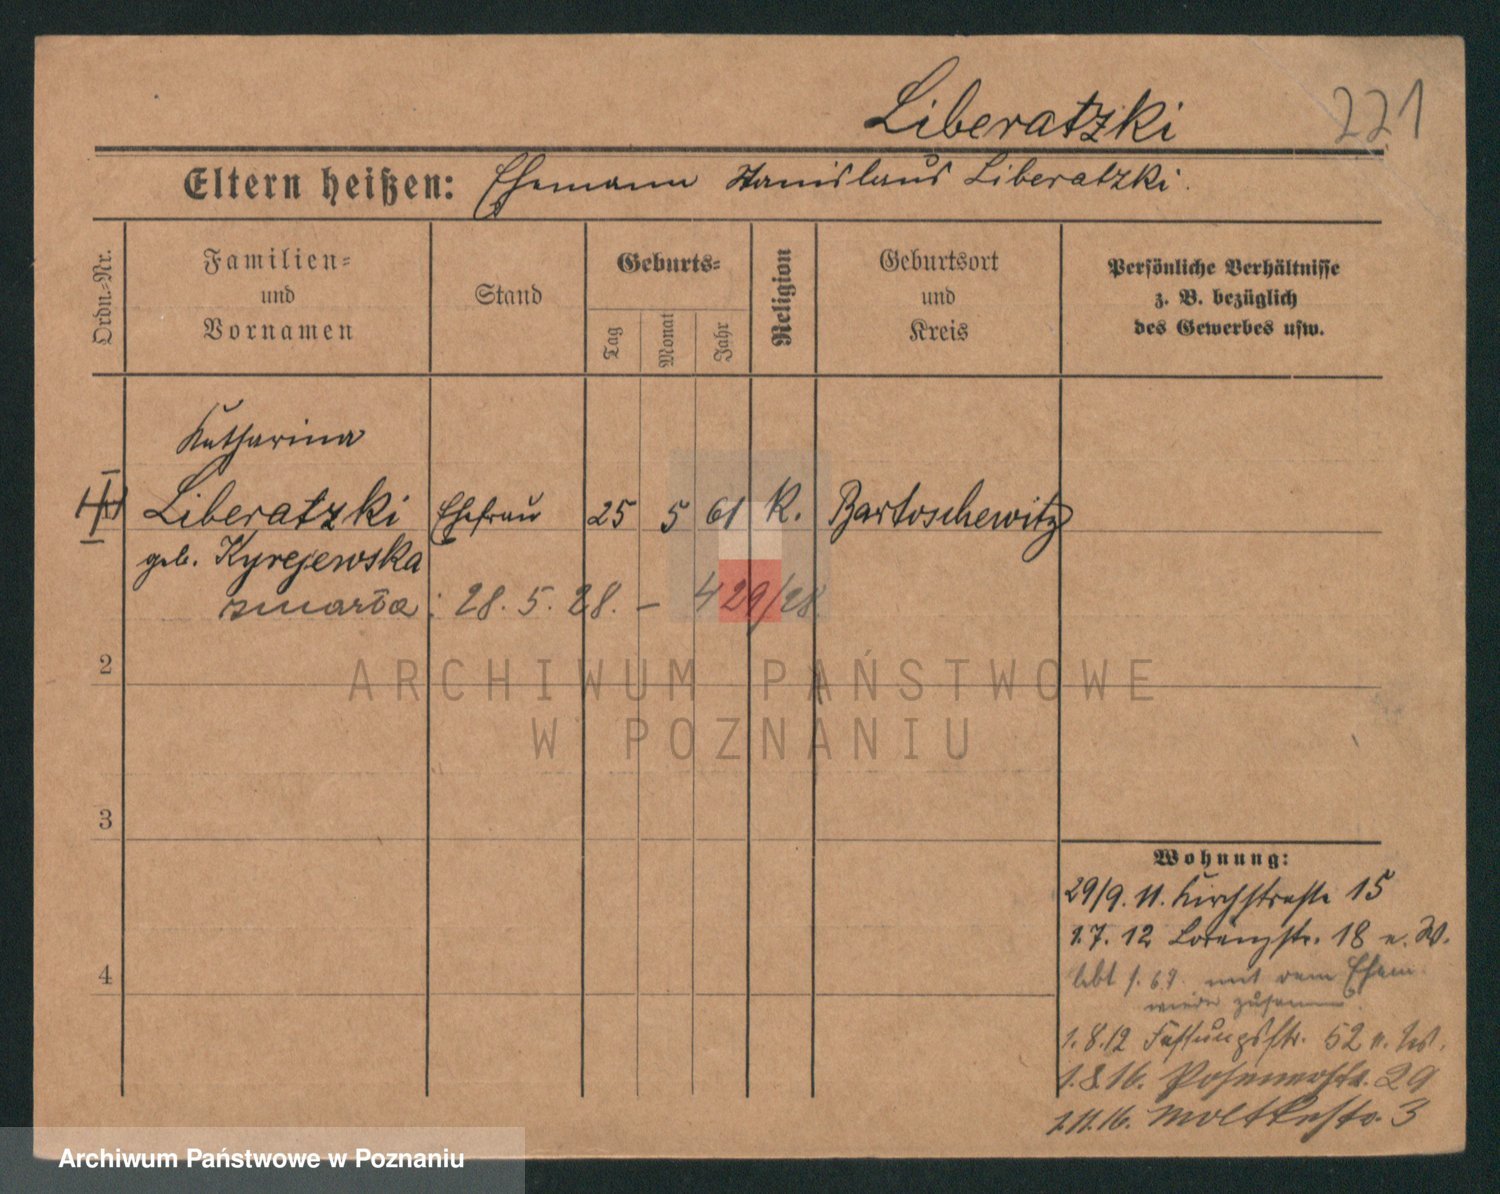 Liberatzki 221
Eltern heißen: Ehemann Stanislaus Liberatzki.
Ordn.-Nr.
Familien-
und
Vornamen
Stand
Geburts-
Tag
Monat
Jahr
Religion
Geburtsort
und
Kreis
Persönliche Verhältnisse
z. B. bezüglich
des Gewerbes usw.
Katharina
Liberatzki Ehefrau 25 5 61 K. Bartoschewitz
geb. Kyrejewska
zmarła: 28. 5. 28. – 429/28
2
3
4
Wohnung:
29/9. 11. Kirchstraße 15
1.7. 12 Lorenzstr. 18 n. W.
lebt s. 6.9. mit dem Ehem.
wieder zusammen.
1.8.12 Festungsstr. 52 n. W.
1.8.16. Posenerstr. 29
1.11.16. Moltkestr. 3
ARCHIWUM PAŃSTWOWE
W POZNANIU
Archiwum Państwowe w Poznaniu